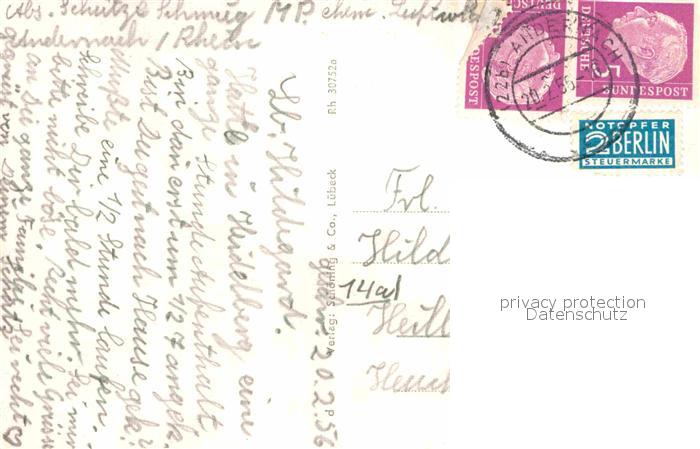 Abs. Schütze Schmug MP chem. Luftw
Andernach / Rhein
gesch. 20.2.56
Lb. Hildegard!
Hatte in Heidelberg eine
ganze Stunde Aufenthalt
Bin dann erst um 1/2 7 angek.
Bist Du gut nach Hause gek?
mußte eine 1/2 Stunde laufen.
Schreibe Dir bald mehr. Sei mir
bitte nicht böse. Recht viele Grüsse
an die ganze Familie. Sei recht
gegrüßt von Deinem Schatz
Rh 30752a
Verlag: Schöning & Co., Lübeck
DEUTSCHE
BUNDESPOST
5
DEUTSCHE
BUNDESPOST
(22b) ANDERNACH
20.2.56
NOTOPFER
2 BERLIN
STEUERMARKE
Frl.
Hild
14a
Heilb
privacy protection
Datenschutz